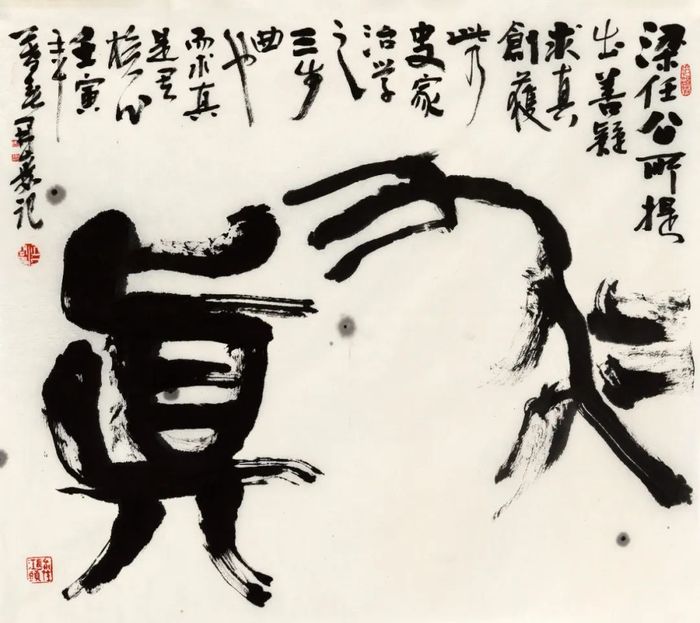 梁任公所提
出善疑
求真
創獲
此乃
史家
治学
之
三步
曲
也
而求真
是其
核心
壬寅
年
暮春
記
求眞